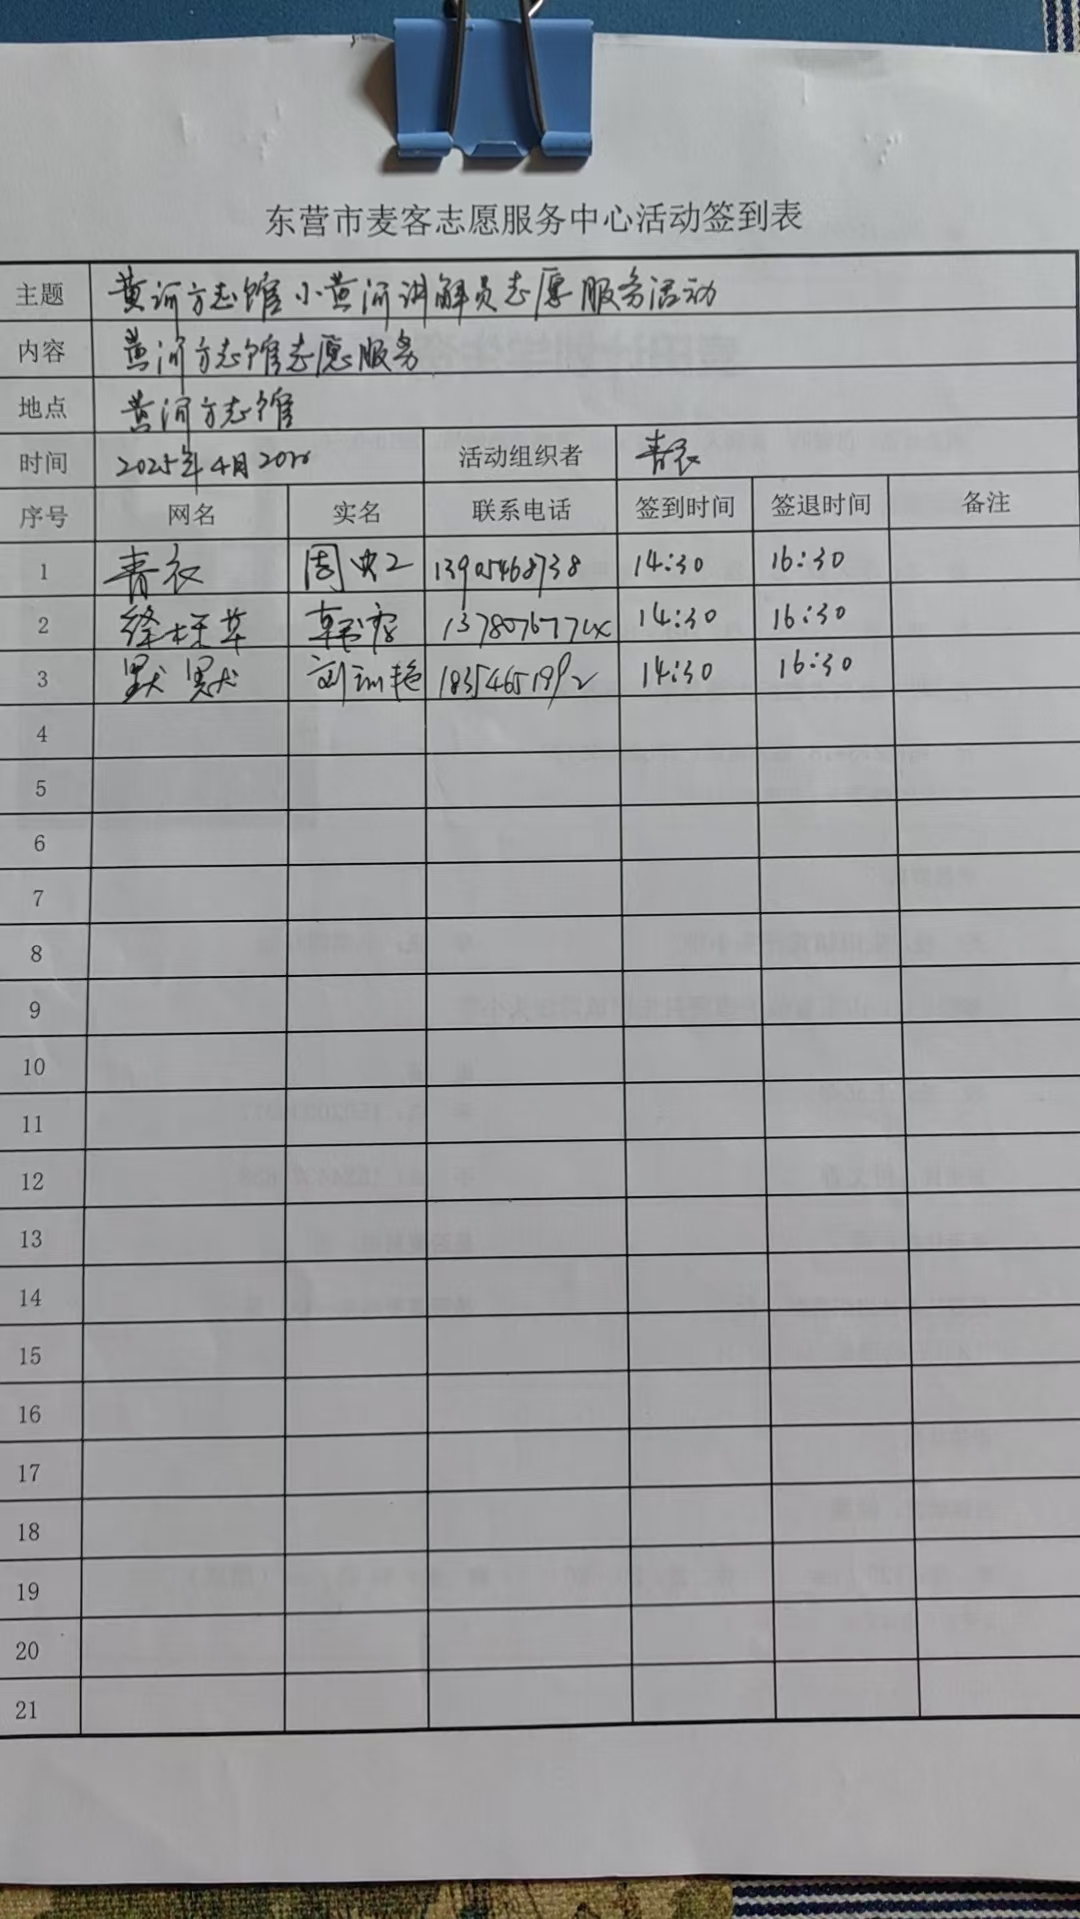 东营市麦客志愿服务中心活动签到表
主题 黄河方志馆小黄河讲解员志愿服务活动
内容 黄河方志馆志愿服务
地点 黄河方志馆
时间 2025年4月20 活动组织者 青衣
序号 网名 实名 联系电话 签到时间 签退时间 备注
1 青衣 周 13905468738 14:30 16:30
2 14:30 16:30
3 默默 刘 艳 14:30 16:30
4
5
6
7
8
9
10
11
12
13
14
15
16
17
18
19
20
21